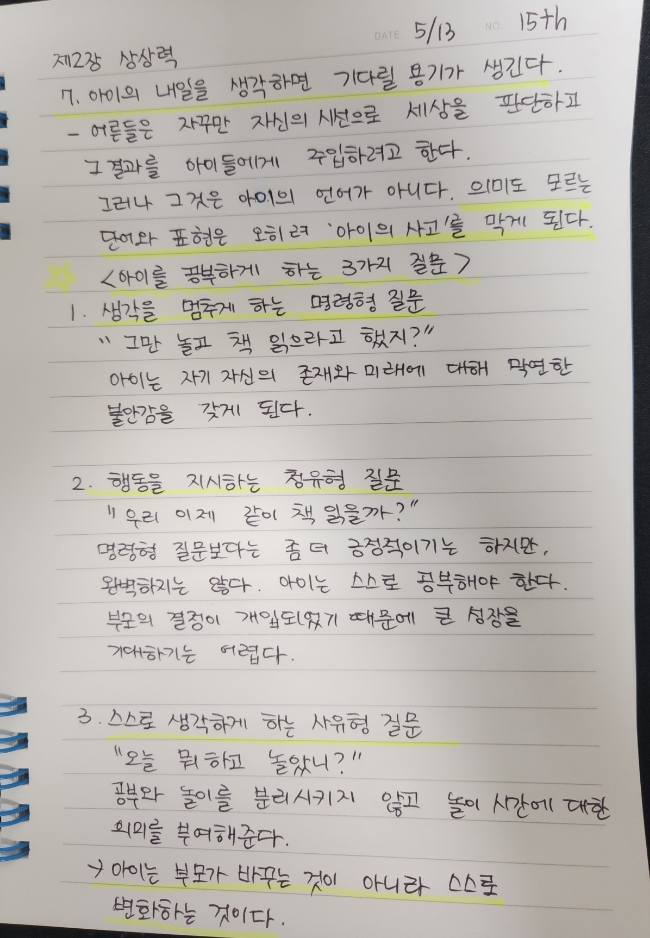 DATE 5/13 NO. 15th
제2장 상상력
7. 아이의 내일을 생각하면 기다릴 용기가 생긴다.
- 어른들은 자꾸만 자신의 시선으로 세상을 판단하고
그 결과를 아이들에게 주입하려고 한다.
그러나 그것은 아이의 언어가 아니다. 의미도 모르는
단어와 표현은 오히려 '아이의 사고'를 막게 된다.
<아이를 공부하게 하는 3가지 질문>
1. 생각을 멈추게 하는 명령형 질문
"그만 놀고 책 읽으라고 했지?"
아이는 자기 자신의 존재와 미래에 대해 막연한
불안감을 갖게 된다.
2. 행동을 지시하는 청유형 질문
"우리 이제 같이 책 읽을까?"
명령형 질문보다는 좀 더 긍정적이기는 하지만,
완벽하지는 않다. 아이는 스스로 공부해야 한다.
부모의 결정이 개입되었기 때문에 큰 성장을
기대하기는 어렵다.
3. 스스로 생각하게 하는 사유형 질문
"오늘 뭐하고 놀았니?"
공부와 놀이를 분리시키지 않고 놀이 시간에 대한
의미를 부여해준다.
→ 아이는 부모가 바꾸는 것이 아니라 스스로
변화하는 것이다.